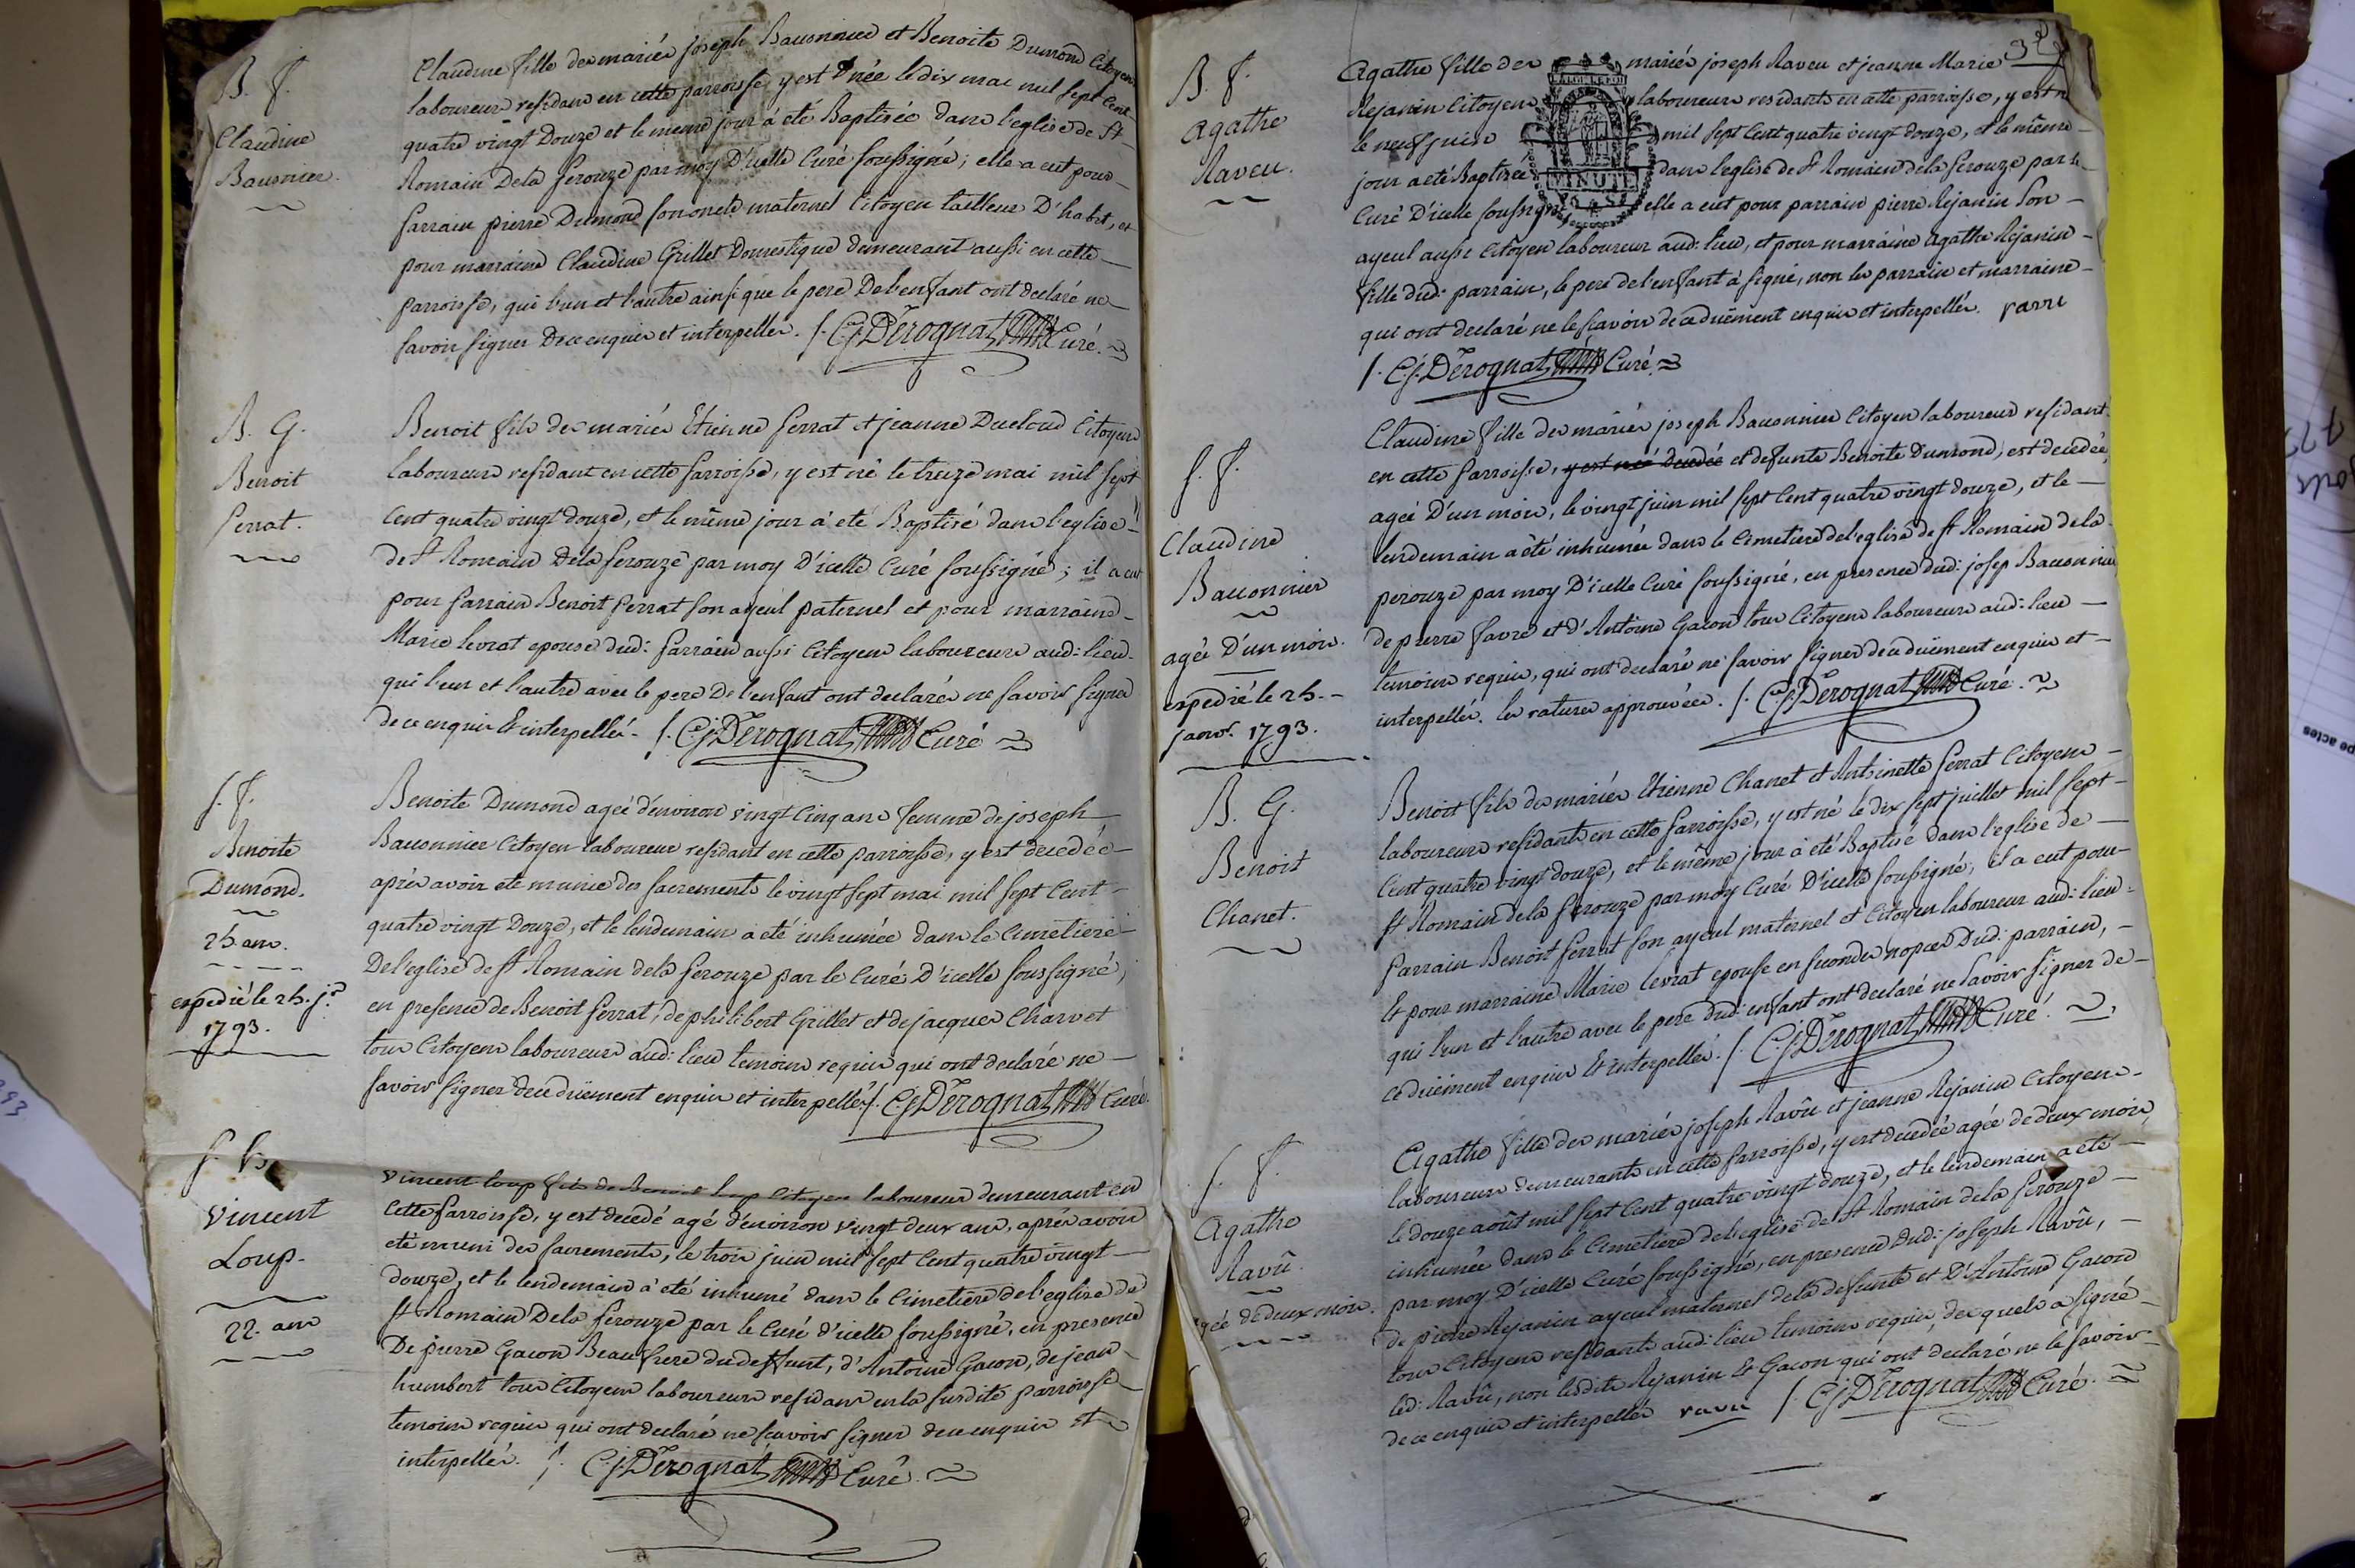 B. f.
Claudine
Bauonnier.
Claudine fille des mariés joseph Bauonnier et Benoite Dumond Citoyens
laboureurs residans en cette parroisse, y est née le dix mai mil sept Cent
quatre vingt Douze et le meme jour a été Baptisée dans l'eglise de St
Romain Dela perouze par moy D'icelle Curé soussigné; elle a eut pour
parrain pierre Dumond son oncle maternel Citoyen tailleur D'habit, et
pour marraine Claudine Grillet Domestique demeurant aussi en cette
parroisse, qui l'un et l'autre ainsi que le pere Del'enfant ont declaré ne
savoir signer Dece enquis et interpellés. /. C. j. Dérognat Curé.
B. G.
Benoit
Perrat.
Benoit fils des mariés Etienne Perrat et jeanne Ducloud Citoyens
laboureurs residant en cette parroisse, y est né le treize mai mil sept
Cent quatre vingt douze, et le même jour a été Baptisé dans l'eglise
de St Romain Dela perouze par moy D'icelle Curé soussigné; il a eut
pour parrain Benoit Perrat son ayeul paternel et pour marraine
Marie levrat epouse dud: parrain aussi Citoyens laboureurs aud: lieu
qui l'un et l'autre avec le pere De l'enfant ont declarés ne savoir signer
de ce enquis Et interpellés. /. C. j. Dérognat Curé
f. f.
Benoite
Dumond.
25. ans.
expedié le 25. j.er
1793.
Benoite Dumond ageé d'environ vingt Cinq ans femme de joseph
Bauonnier Citoyen laboureur residant en cette parroisse, y est decedée
après avoir eté munie des sacrements le vingt sept mai mil sept Cent
quatre vingt Douze, et le lendemain a été inhumée dans le Cimetiere
De l'eglise de St Romain dela Perouze par le Curé D'icelle soussigné,
en presence de Benoit Perrat, de philibert Grillet et de jacques Charvet
tous Citoyens laboureurs aud: lieu temoins requis qui ont declaré ne
savoir signer dece duëment enquis et interpellés /. C. j. Dérognat Curé.
Vincent
Loup.
22. ans
Vincent loup fils de Benoit loup Citoyen laboureur demeurant en
cette parroisse, y est decedé agé d'environ vingt deux ans, après avoir
été muni des sacrements, le trois juin mil sept Cent quatre vingt
douze, et le lendemain a été inhumé dans le Cimetiere de l'eglise de
St Romain Dela Perouze par le Curé d'icelle soussigné, en presence
De pierre Gacon Beaufrere du deffunt, d'Antoine Gacon, de jean
humbert tous Citoyens laboureurs residans en la susdite parroisse
temoins requis qui ont declaré ne sçavoir signer dece enquis et
interpellés. /. C. j. Dérognat Curé.
B. f.
Agathe
Raveu.
Agathe fille des mariés joseph Raveu et jeanne Marie
Rejanin Citoyens laboureurs residants en cette parroisse, y est n
le neuf juin mil sept Cent quatre vingt douze, et le même
jour a eté Baptisée dans l'eglise de St Romain dela perouze par le
Curé D'icelle soussigné elle a eut pour parrain pierre Rejanin son
ayeul aussi Citoyen laboureur aud: lieu, et pour marraine Agathe Rejanin
fille dud: parrain, le pere de l'enfant a signé, non les parrain et marraine
qui ont declaré ne le sçavoir de ce duëment enquis et interpellés. ravu
/. C. j. Dérognat Curé
LA LOI LE ROI
MINUTE
f. f.
Claudine
Bauonnier
ageé D'un mois.
expedié le 25.
janv.r 1793.
Claudine fille des mariés joseph Bauonnier Citoyen laboureur residant
en cette parroisse, y est née decedée et defunte Benoite Dumond, est decedée,
ageé D'un mois, le vingt juin mil sept Cent quatre vingt douze, et le
lendemain a été inhumée dans le Cimetiere de l'eglise de St Romain dela
perouze par moy D'icelle Curé soussigné, en presence dud: josep Bauonnier
de pierre favre et d'Antoine Gacon tous Citoyens laboureurs aud: lieu
temoins requis, qui ont declaré ne savoir signer de ce duëment enquis et
interpellés. les ratures approuvées. /. C. j. Dérognat Curé.
B. G.
Benoit
Chanet.
Benoit fils des mariés Etienne Chanet et Antoinette Perrat Citoyens
laboureurs residants en cette parroisse, y est né le dix sept juillet mil sept
Cent quatre vingt douze, et le même jour a été Baptisé dans l'eglise de
St Romain dela Perouze par moy Curé D'icelle soussigné, il a eut pour
parrain Benoit Perrat son ayeul maternel et Citoyen laboureur aud: lieu
Et pour marraine Marie levrat epouse en secondes nopces Dud: parrain,
qui l'un et l'autre avec le pere dud: enfant ont declaré ne savoir signer de
ce duëment enquis Et interpellés. /. C. j. Dérognat Curé.
f. f.
Agathe
Ravû.
agée de deux mois.
Agathe fille des mariés joseph Ravû et jeanne Rejanin Citoyens
laboureurs demeurants en cette parroisse, y est decedée agée de deux mois
le douze août mil sept Cent quatre vingt douze, et le lendemain a été
inhumée dans le Cimetiere de l'eglise de St Romain dela Perouze
par moy D'icelle Curé soussigné, en presence Dud: joseph Ravû,
de pierre Rejanin ayeul maternel de la defunte et D'Antoine Gacon
tous Citoyens residants aud: lieu temoins requis, des quels a signé
led: Ravû, non lesdits Rejanin Et Gacon qui ont declaré ne le savoir
de ce enquis et interpellés ravu /. C. j. Dérognat Curé.